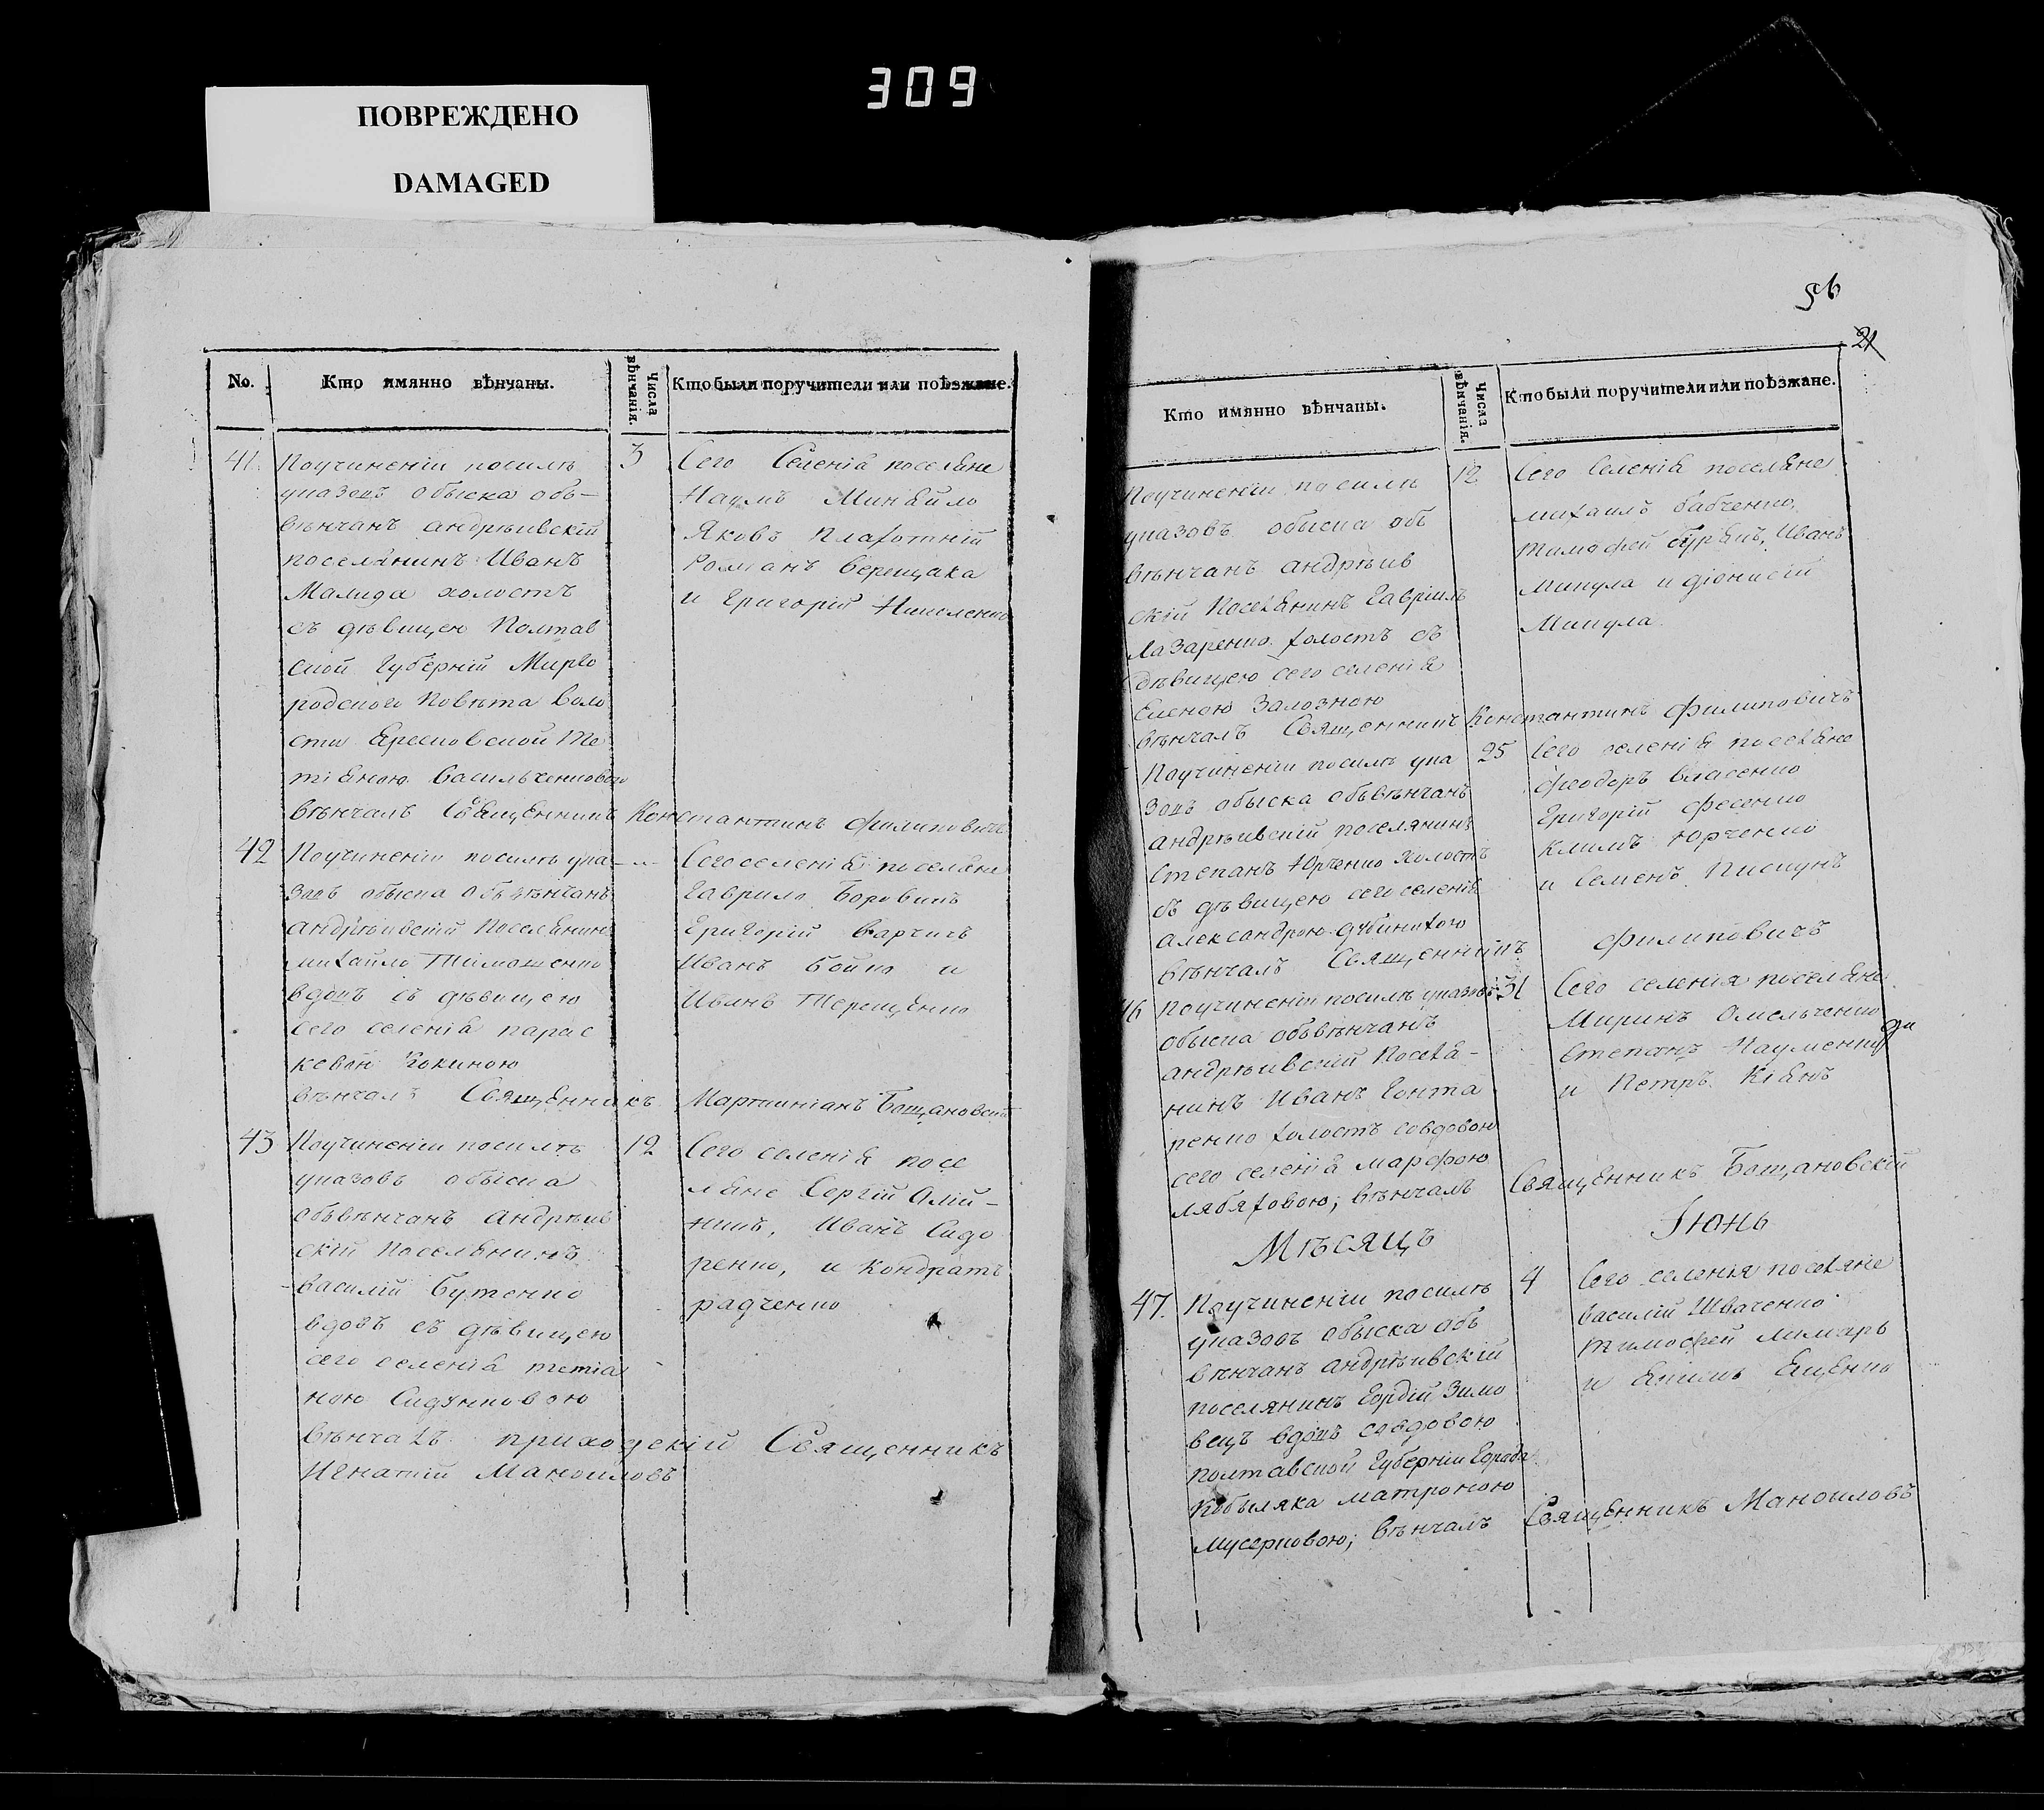 309
ПОВРЕЖДЕНО
DAMAGED
No.
Кто имянно вѣнчаны.
Числа вѣнчанія.
Кто были поручители или поѣзжане.
41.
Поучиненіи посилѣ
указовъ обыска объ-
вѣнчанъ андрѣивскій
поселянинъ Иванъ
Малида холостъ
съ дѣвицею Полтав
ской Губерніи Мирго
родского Повѣта воло
сти Ересковской Те
тіяною Васильченковою
вѣнчалъ Священникъ Константинъ Филиповичъ
3
Сего Селенія поселяне
Наумъ Миняйло
Яковъ Плахотній
Романъ Верещака
и Григорій Николенко
42
Поучиненіи посилѣ ука-
зовъ обыска объвѣнчанъ
андрѣивскій Поселянинъ
михайло Тимошенко
вдовъ съ дѣвицею
сего селенія парас
кевой Кокиною
вѣнчалъ Священникъ Мартиніанъ Бощановскій
Сего селенія поселяне
Гаврило Боровикъ
Григорій
Иванъ Бойко и
Иванъ Терещенко
43
Поучиненіи посилѣ
указовъ обыска
объвѣнчанъ андрѣив
скій Поселянинъ
василій Бутенко
вдовъ съ дѣвицею
сего селенія тетіа
ною Сидунковою
вѣнчалъ приходскій Священникъ
Игнатій Маноиловъ
12
Сего селенія посе
ляне Сергій Олій-
никъ, Иванъ Сидо
ренко, и Кондратъ
радченко
56
21
Кто имянно вѣнчаны.
Числа вѣнчанія.
Кто были поручители или поѣзжане.
Поучиненіи посилѣ
указовъ обыска объ
вѣнчанъ андрѣив
скій Поселянинъ Гавріилъ
Лазаренко холостъ съ
дѣвицею сего селенія
Еленою Залозною
вѣнчалъ Священникъ Константинъ Филиповичъ
12
Сего Селенія поселяне
михаилъ бабченко,
тимофей Иванъ
Микула и діонисій
Микула
Поучиненіи посилѣ ука
зовъ обыска объвѣнчанъ
андрѣивскій поселянинъ
Степанъ Юрченко холостъ
съ дѣвицею сего селенія
александрою
вѣнчалъ Священникъ Филиповичъ
25
Сего селенія поселяне
феодоръ власенко
Григорій Фесенко
климъ Юрченко
и Семенъ Пискунъ
46
Поучиненіи посилѣ указовъ
обыска объвѣнчанъ
андрѣивскій Поселя-
нинъ Иванъ Гонта
ренко холостъ совдовою
сего селенія марфою
лябяховою; вѣнчалъ Священникъ Бощановскій
31
Сего селенія поселяне
Миринъ Омельченко
Степанъ Науменко
и Петръ Кіянъ
Мѣсяцъ Іюнь
47.
Поучиненіи посилѣ
указовъ обыска объ
вѣнчанъ андрѣивскій
поселянинъ Гордій Зимо
вецъ вдовъ совдовою
полтавской Губерніи Города
Кобыляка матроною
мусерковою; вѣнчалъ Священникъ Маноиловъ
4
Сего селенія поселяне
василій Шваченко
тимофей лимаръ
и Якимъ Яценко